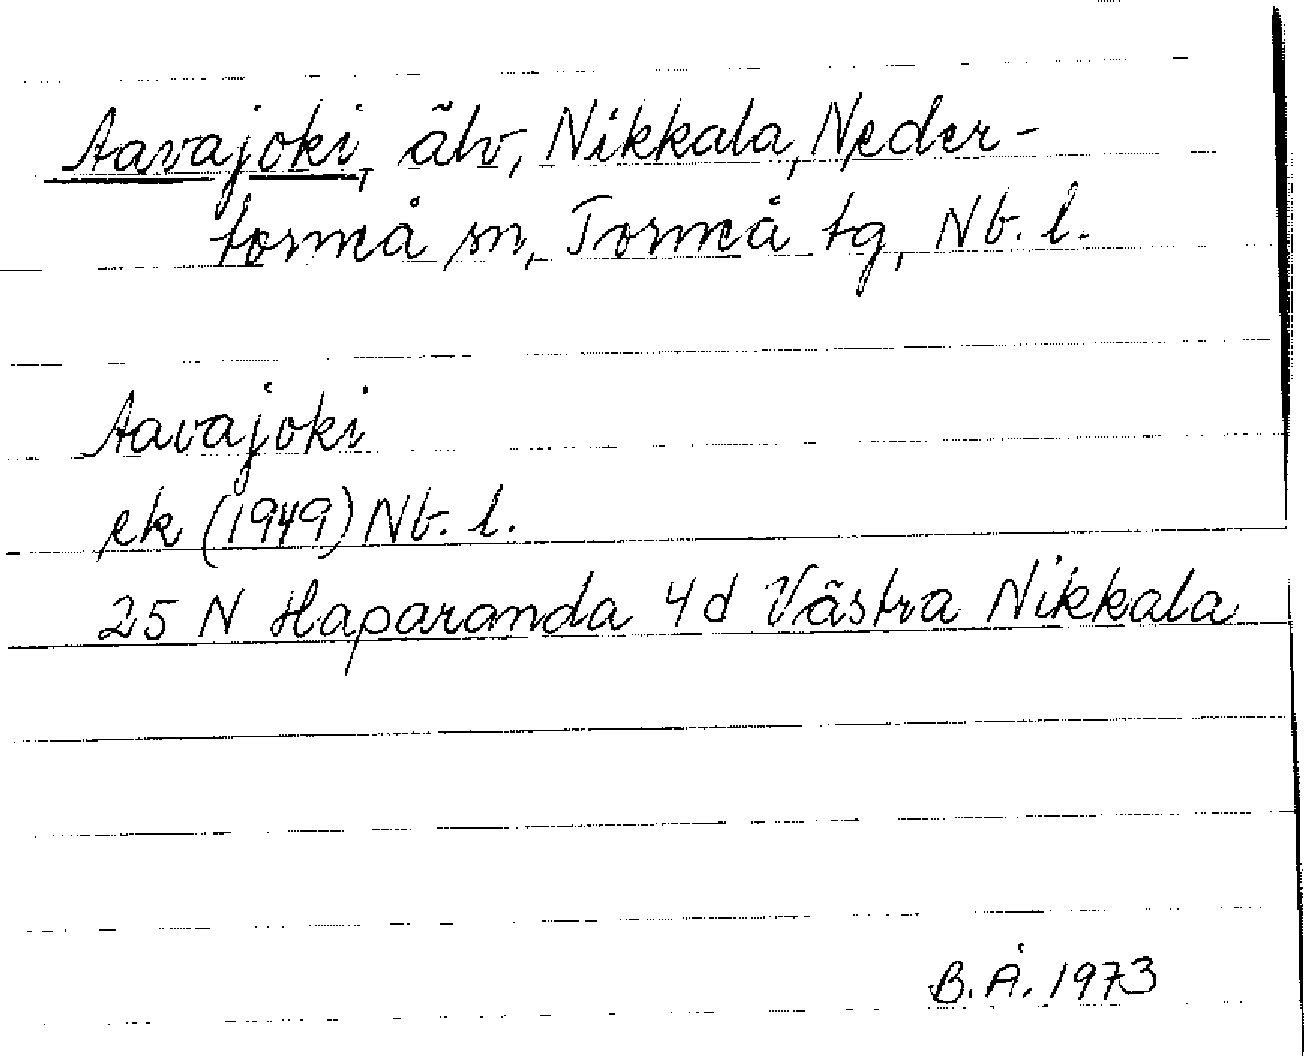 Aavajoki, älv, Nikkala, Neder-
torneå sn, Torneå tg, Nb. l.
Aavajoki
ek (1949) Nb. l.
25 N Haparanda 4d Västra Nikkala
B.Å. 1973